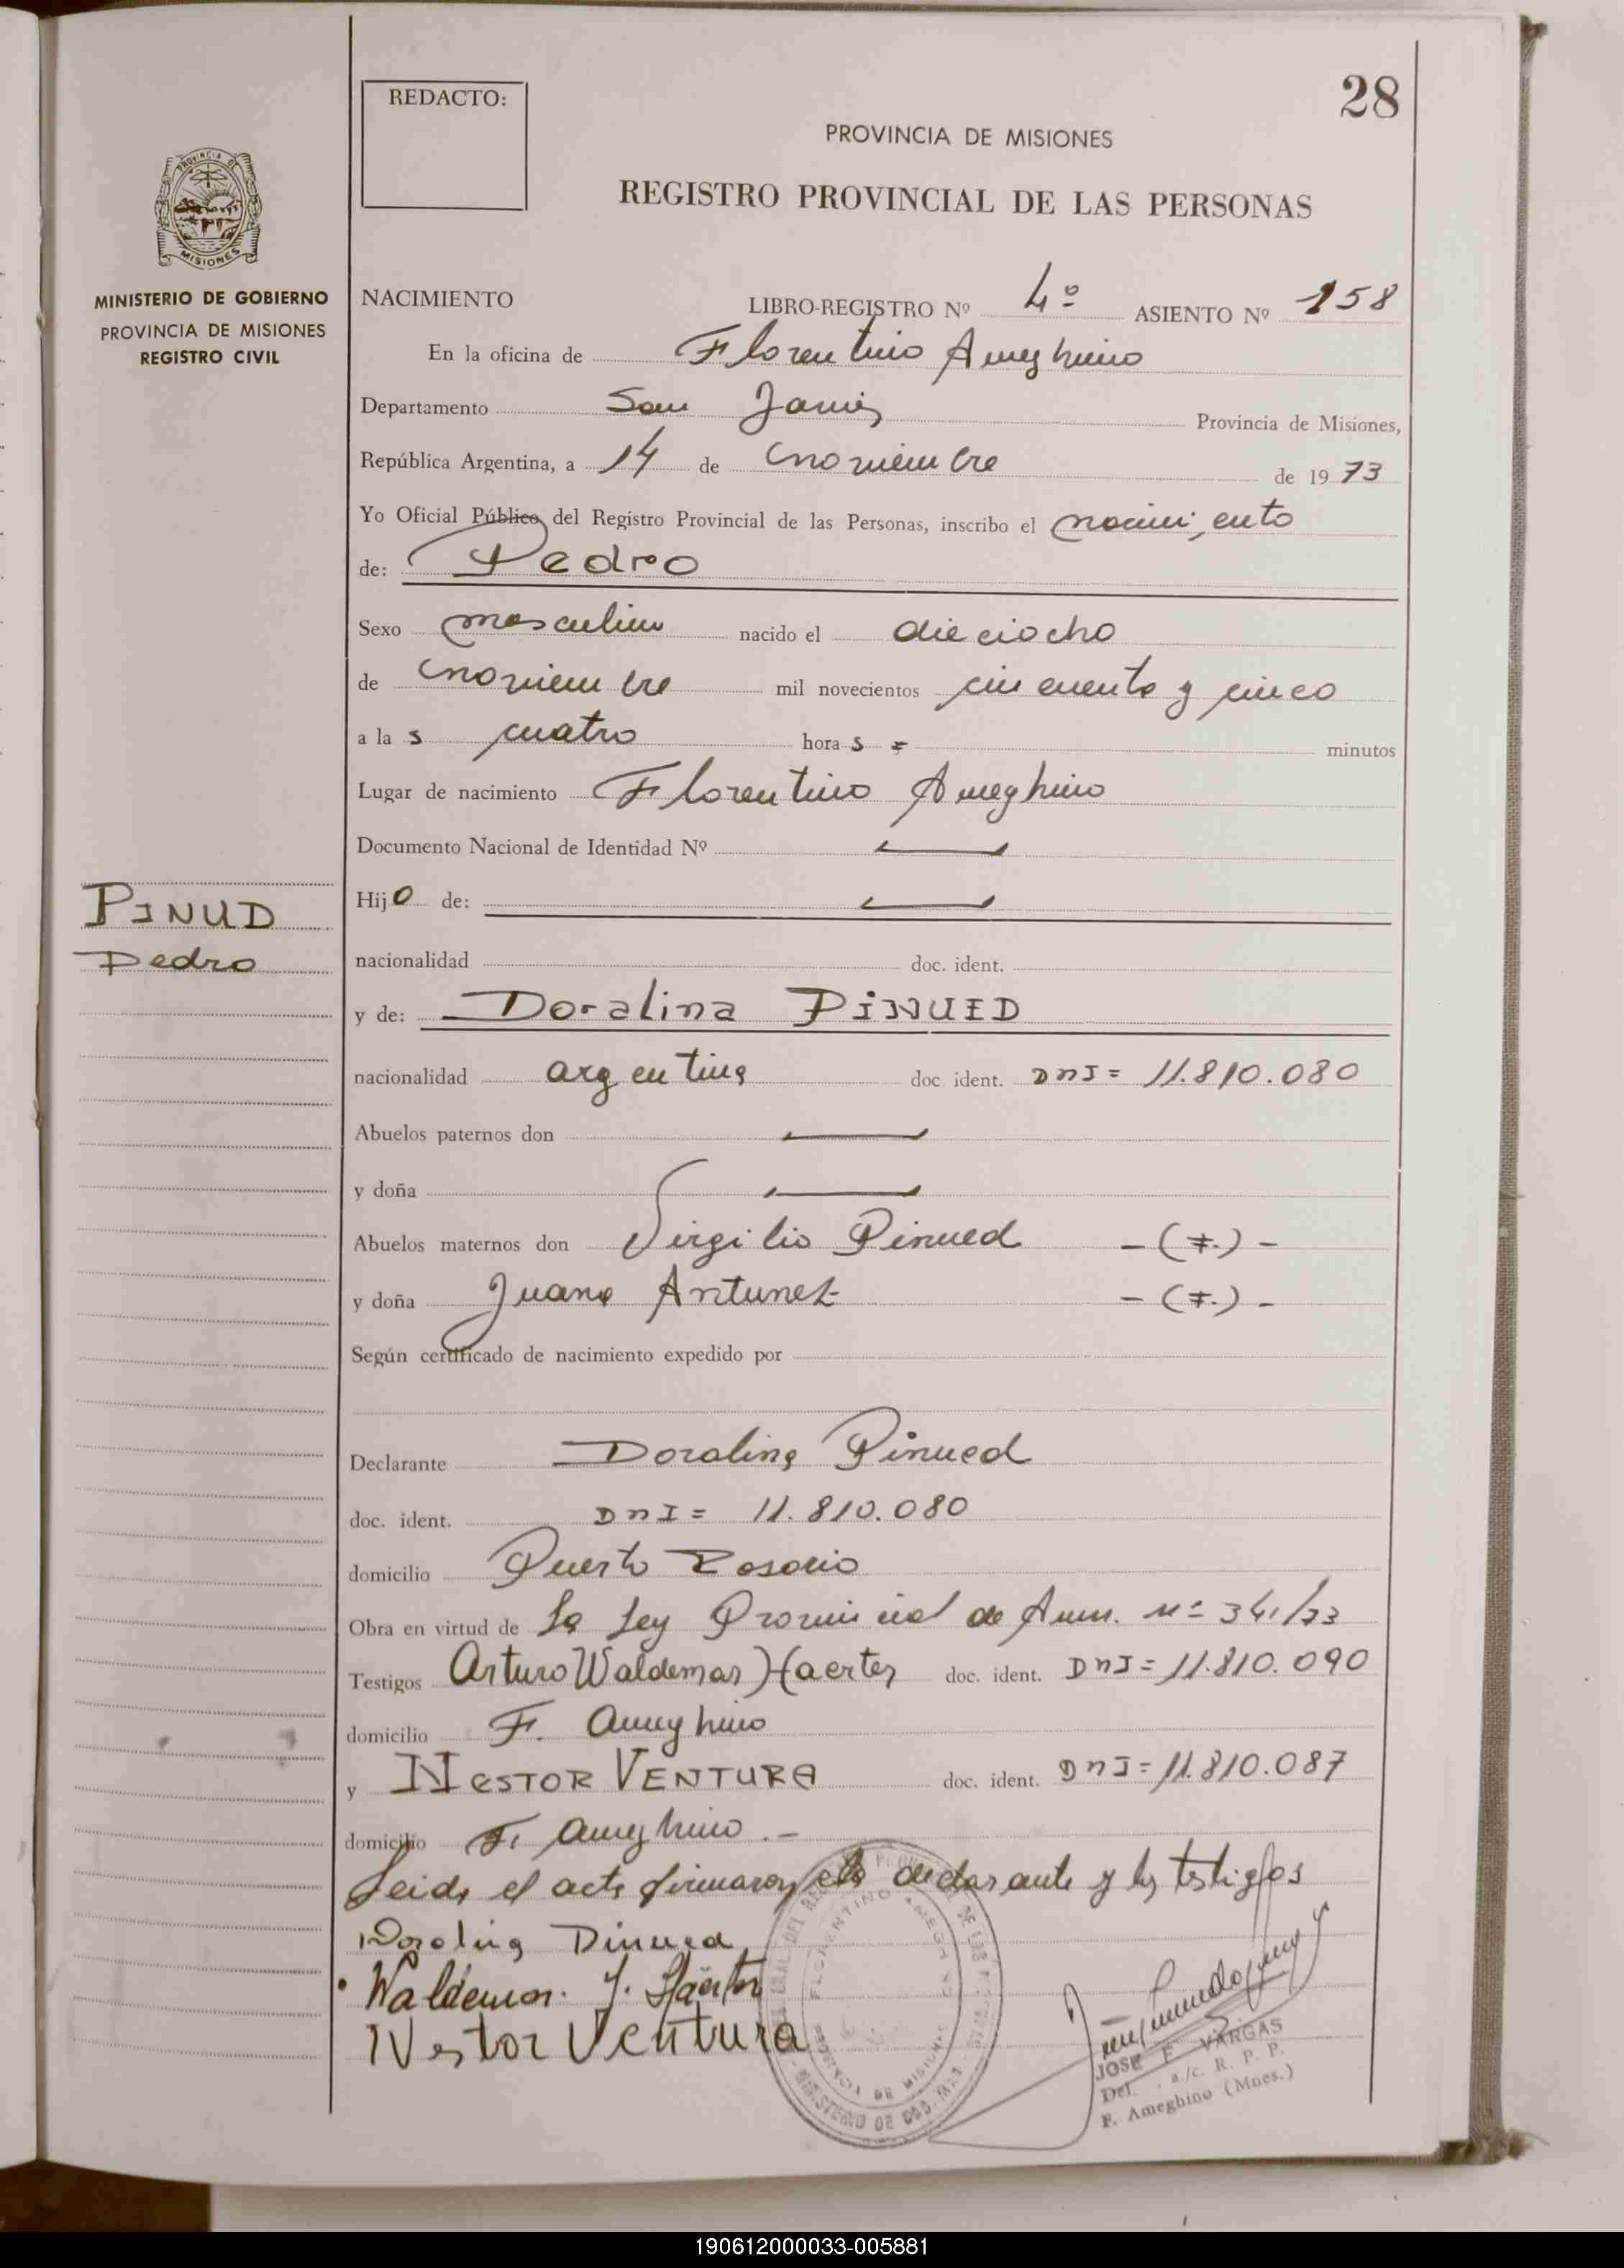 28
REDACTO:
PROVINCIA DE MISIONES
REGISTRO PROVINCIAL DE LAS PERSONAS
PROVINCIA DE
MISIONES
MINISTERIO DE GOBIERNO
PROVINCIA DE MISIONES
REGISTRO CIVIL
NACIMIENTO LIBRO-REGISTRO Nº 4º ASIENTO Nº 158
En la oficina de Florentino Ameghino
Departamento San Javier Provincia de Misiones,
República Argentina, a 14 de noviembre de 1973
Yo Oficial Público del Registro Provincial de las Personas, inscribo el nacimiento
de: Pedro
Sexo masculino nacido el dieciocho
de noviembre mil novecientos cincuenta y cinco
a las cuatro horas = minutos
Lugar de nacimiento Florentino Ameghino
Documento Nacional de Identidad Nº
Hijo de:
PINUD
Pedro
nacionalidad doc. ident.
y de: Doralina PINUED
nacionalidad argentina doc ident. DNI= 11.810.080
Abuelos paternos don
y doña
Abuelos maternos don Virgilio Pinued -(F.)-
y doña Juana Antunez -(F.)-
Según certificado de nacimiento expedido por
Declarante Doralina Pinued
doc. ident. DNI= 11.810.080
domicilio Puerto Rosario
Obra en virtud de La Ley Provincial de Amn. nº 341/73
Testigos Arturo Waldemar Haerter doc. ident. DNI= 11.810.090
domicilio F. Ameghino
y NESTOR VENTURA doc. ident. DNI= 11.810.087
domicilio F. Ameghino.-
Leida el acta firmaron la declarante y los testigos
Doralina Pinued
Waldemar. Haerter
Nestor Ventura
FLORENTINO AMEGHINO
PROVINCIA DE MISIONES
MINISTERIO DE GOB.
JOSE F. VARGAS
Del. a/c. R. P. P.
F. Ameghino (Mnes.)
190612000033-005881